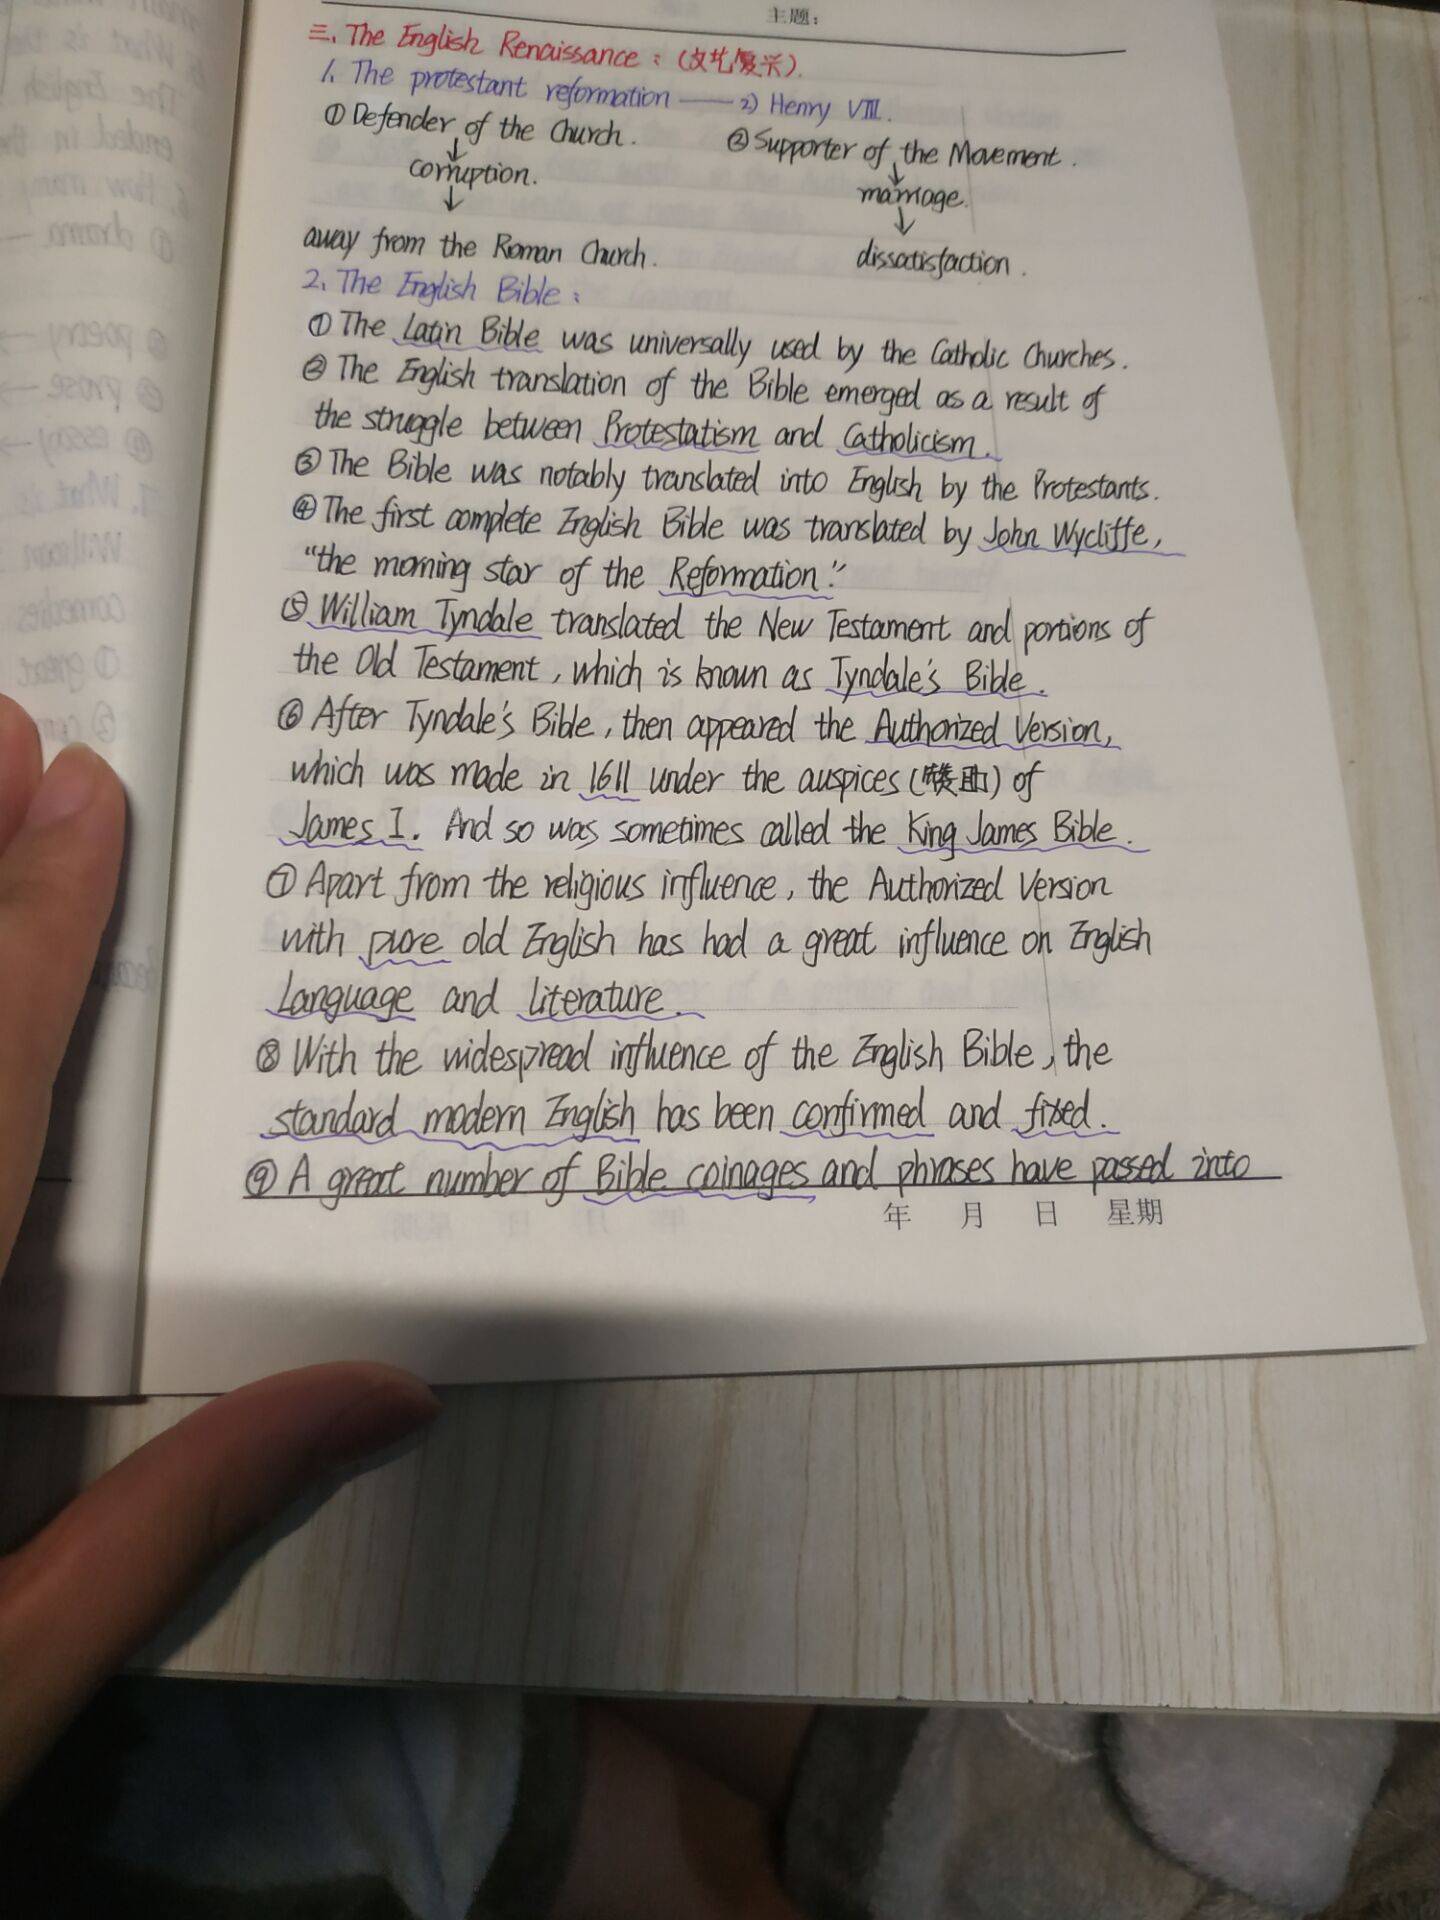 主题：
三、The English Renaissance：(文艺复兴).
1、The protestant reformation —— 2) Henry VIII.
① Defender of the Church. ② Supporter of the Movement.
↓ ↓
corruption. marriage.
↓ ↓
away from the Roman Church. dissatisfaction.
2、The English Bible：
① The Latin Bible was universally used by the Catholic Churches.
② The English translation of the Bible emerged as a result of
the struggle between Protestatism and Catholicism.
③ The Bible was notably translated into English by the Protestants.
④ The first complete English Bible was translated by John Wycliffe,
“the morning star of the Reformation.”
⑤ William Tyndale translated the New Testament and portions of
the Old Testament, which is known as Tyndale's Bible.
⑥ After Tyndale's Bible, then appeared the Authorized Version,
which was made in 1611 under the auspices (赞助) of
James I. And so was sometimes called the King James Bible.
⑦ Apart from the religious influence, the Authorized Version
with pure old English has had a great influence on English
Language and Literature.
⑧ With the widespread influence of the English Bible, the
standard modern English has been confirmed and fixed.
⑨ A great number of Bible coinages and phrases have passed into
年 月 日 星期